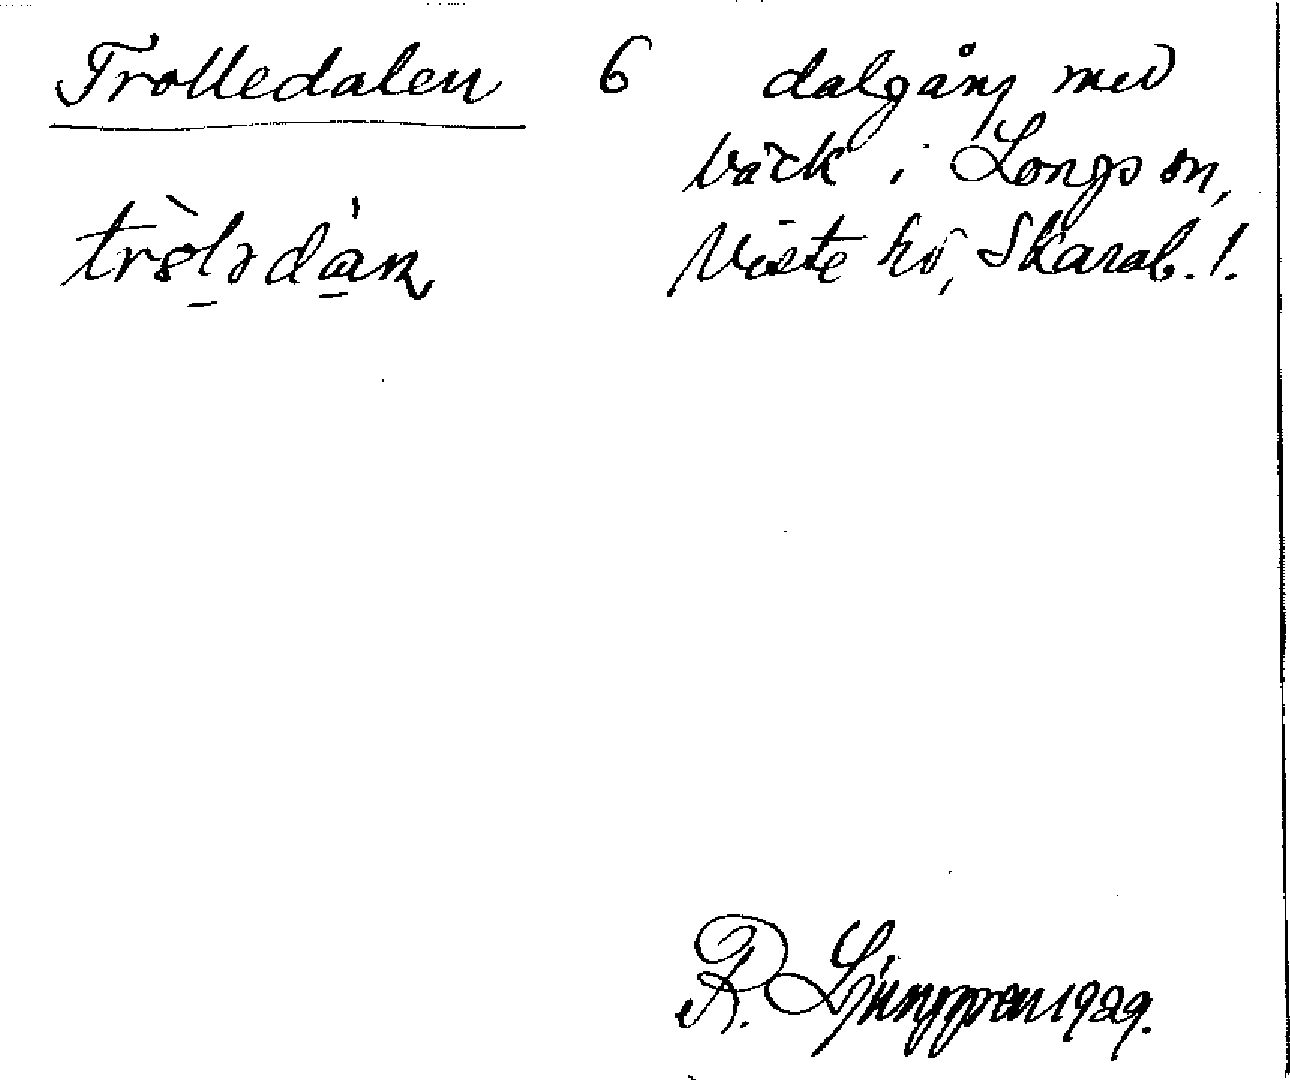 Trolledalen 6 dalgång med
bäck i Longs sn,
Viste hd, Skarab. l.
R. Ljunggren 1929.